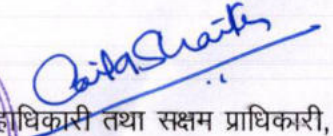 हाधिकारी तथा सक्षम प्राधिकारी,